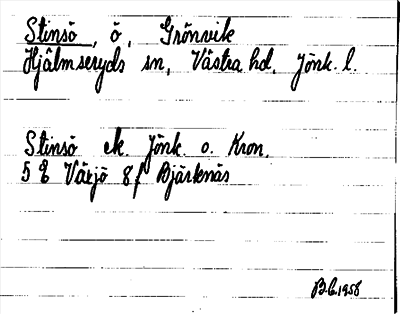 Stinsö, ö, Grönvik
Hjälmseryds sn, Västra hd, Jönk. l.
Stinsö ek Jönk o. Kron.
5 Växjö 8f Bjärknäs
B.C. 1958